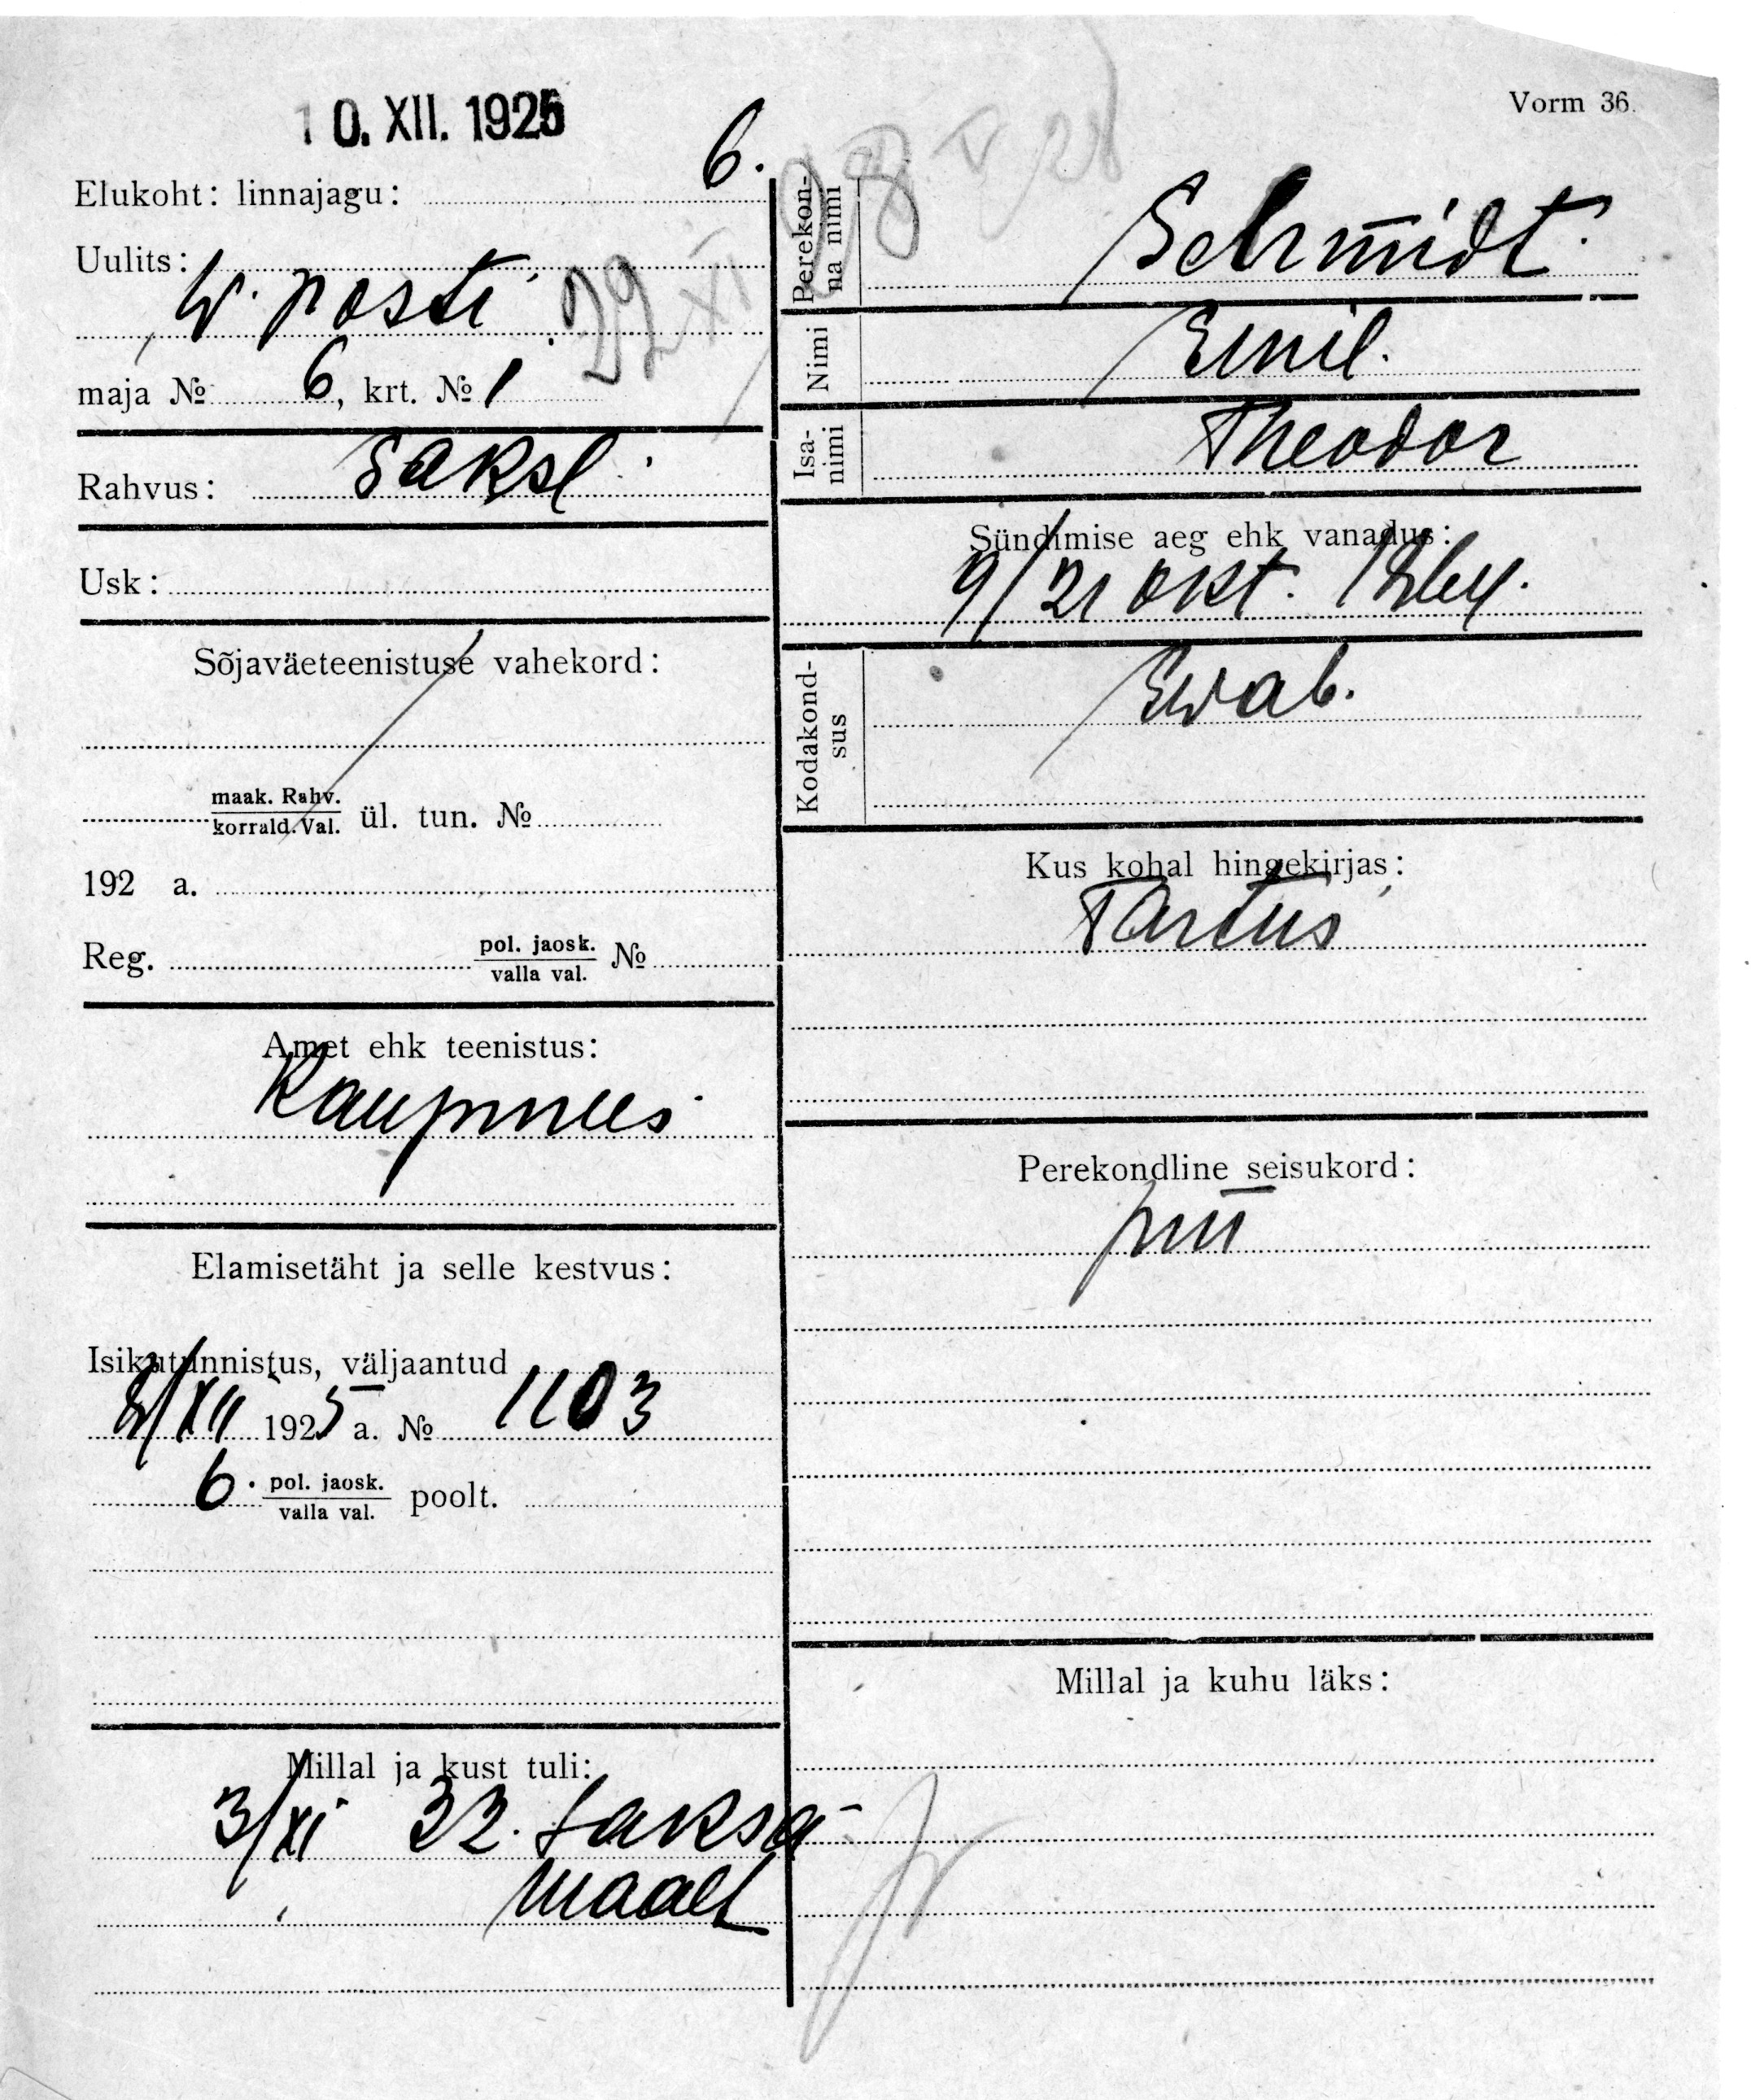 10. XII. 1925
Vorm 36.
Elukoht: linnajagu: 6.
Uulits:
W. Posti
maja № 6, krt. № 1
Rahvus: Saksl.
Usk:
Sõjaväeteenistuse vahekord:
maak. Rahv.
korrald. Val. ül. tun. №
192 a.
Reg. pol. jaosk.
valla val. №
Amet ehk teenistus:
Kaupmees
Elamisetäht ja selle kestvus:
Isikutunnistus, väljaantud
8/XII 1925 a. № 1103
6. pol. jaosk.
valla val. poolt.
Millal ja kust tuli:
3/XI 32. Saksa-
maalt
28 V 28
29 XI
Perekon-
na nimi
Schmidt.
Nimi
Emil.
Isa-
nimi
Theodor
Sündimise aeg ehk vanadus:
9/21 okt. 1864.
Kodakond-
sus
Ewab.
Kus kohal hingekirjas:
Tartus
Perekondline seisukord:
Millal ja kuhu läks: